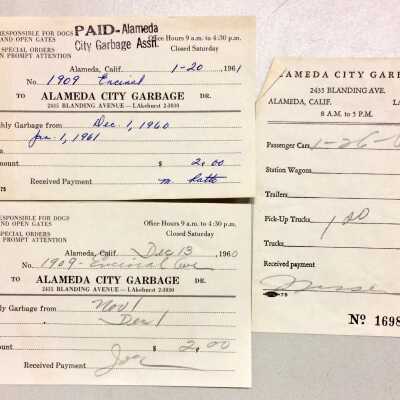 RESPONSIBLE FOR DOGS
AND OPEN GATES
SPECIAL ORDERS
PROMPT ATTENTION
PAID-Alameda
City Garbage Assn.
Office Hours 9 a.m. to 4:30 p.m.
Closed Saturday
Alameda, Calif. 1-20 1961
No. 1909 Encinal
TO ALAMEDA CITY GARBAGE DR.
2435 BLANDING AVENUE—Lakehurst 2-3030
Garbage from Dec 1, 1960
Jan. 1, 1961
Amount $ 2.00
Received Payment
FOR DOGS
OPEN GATES
ORDERS
PROMPT ATTENTION
Office Hours 9 a.m. to 4:30 p.m.
Closed Saturday
Alameda, Calif. Dec 13 1960
No. 1909-Encinal Ave
TO ALAMEDA CITY GARBAGE DR.
2435 BLANDING AVENUE—Lakehurst 2-3030
Garbage from Nov 1
Dec 1
$ 2.00
Received Payment Joe
ALAMEDA CITY GARB
2435 BLANDING AVE.
ALAMEDA, CALIF. LA
8 A.M. to 5 P.M.
Passenger Cars 1-26-
Station Wagons
Trailers
Pick-Up Trucks 1.00
Trucks
Received payment
Nº 1698